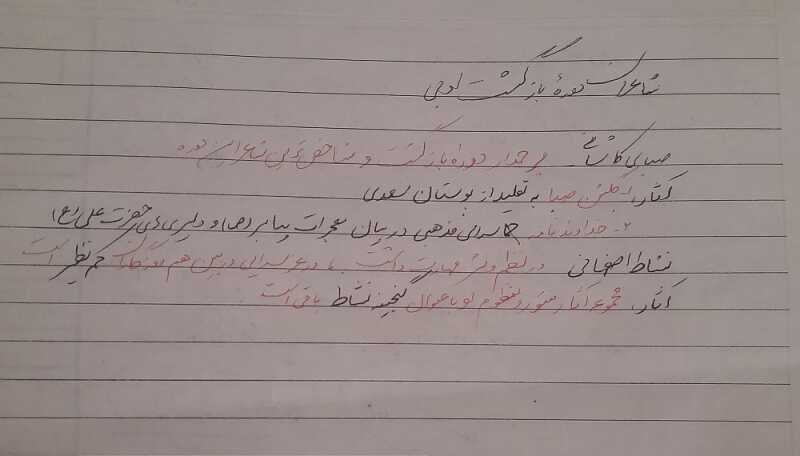 شاعران دورهٔ بازگشت ادبی
صبای کاشانی پرچمدار دوره بازگشت و شاخص ترین شاعر این دوره
آثار: ۱- گلشن صبا به تقلید از بوستان سعدی
۲- خداوندنامه حماسه ای مذهبی در بیان معجزات پیامبر (ص) و دلیری های حضرت علی (ع)
نشاط اصفهانی در نظم و نثر مهارت داشت و در غزلسرایی در بین هم روزگاران کم نظیر است
آثار: مجموعه آثار منثور و منظوم او با عنوان گنجینه نشاط باقی است